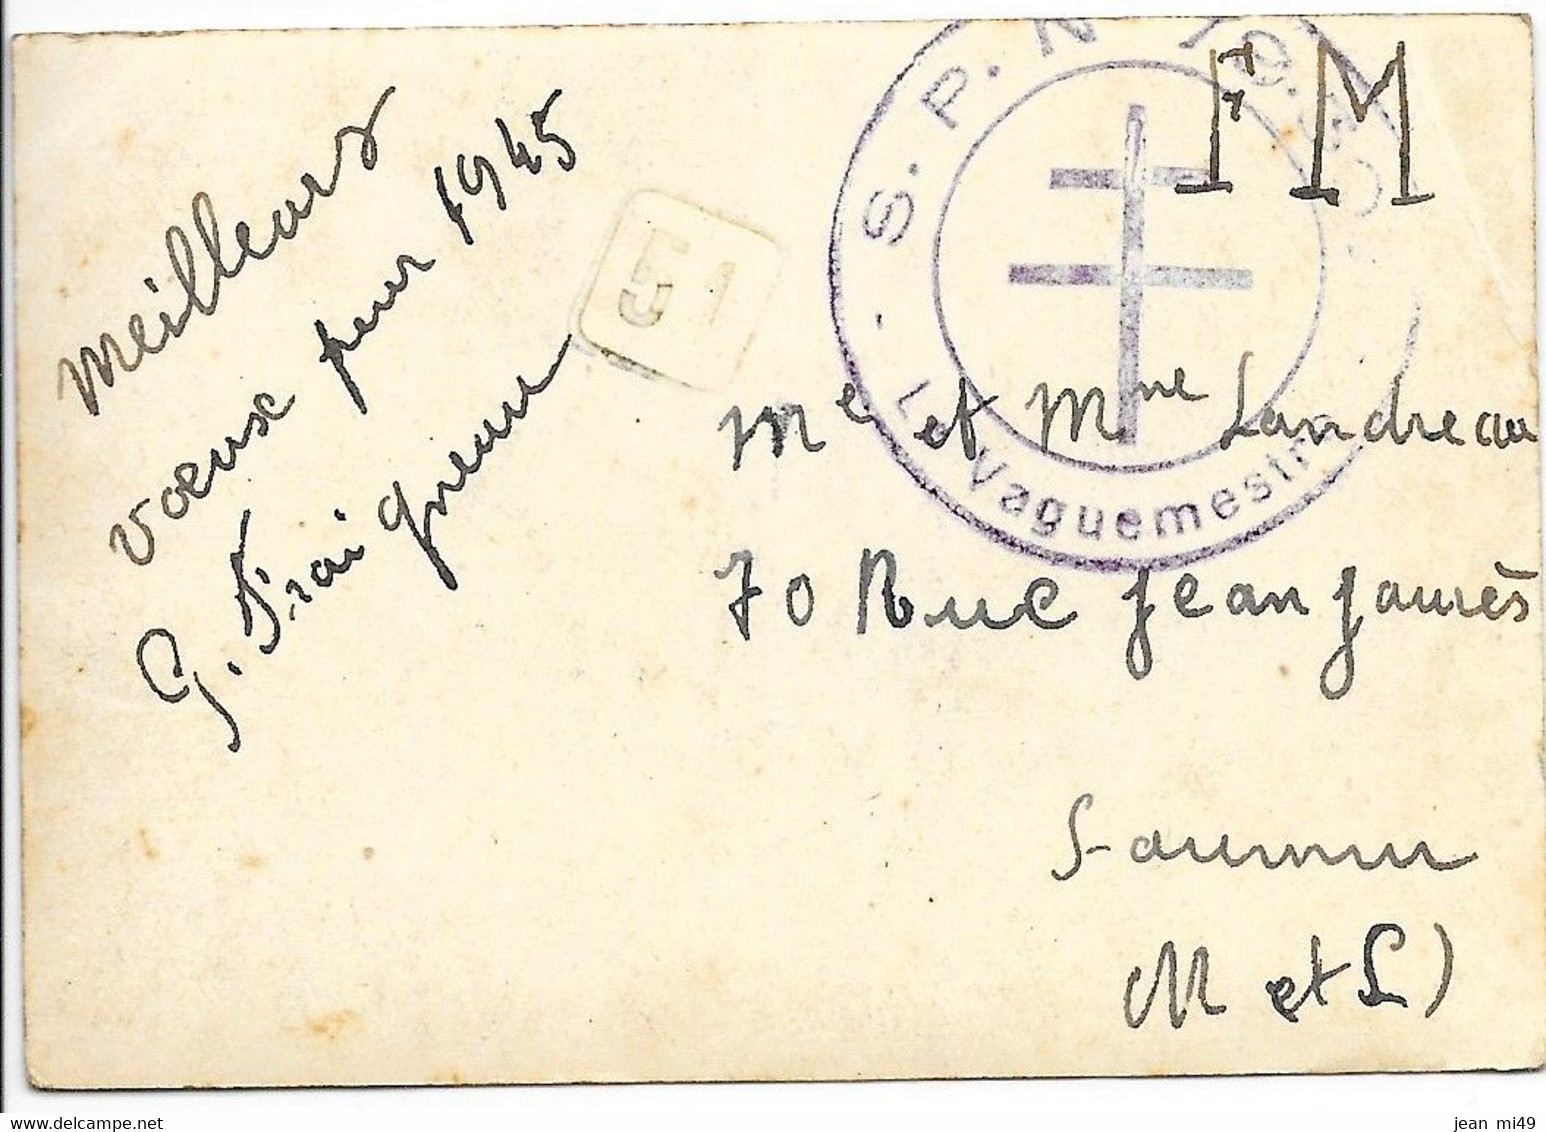 meilleurs
voeux pour 1945
G. Fraigneau
51
S.P.N
Le Vaguemestre
F M
Mr et Mme Landreau
70 Rue Jean Jaurès
Saumur
(M et L)
www.delcampe.net
jean mi49